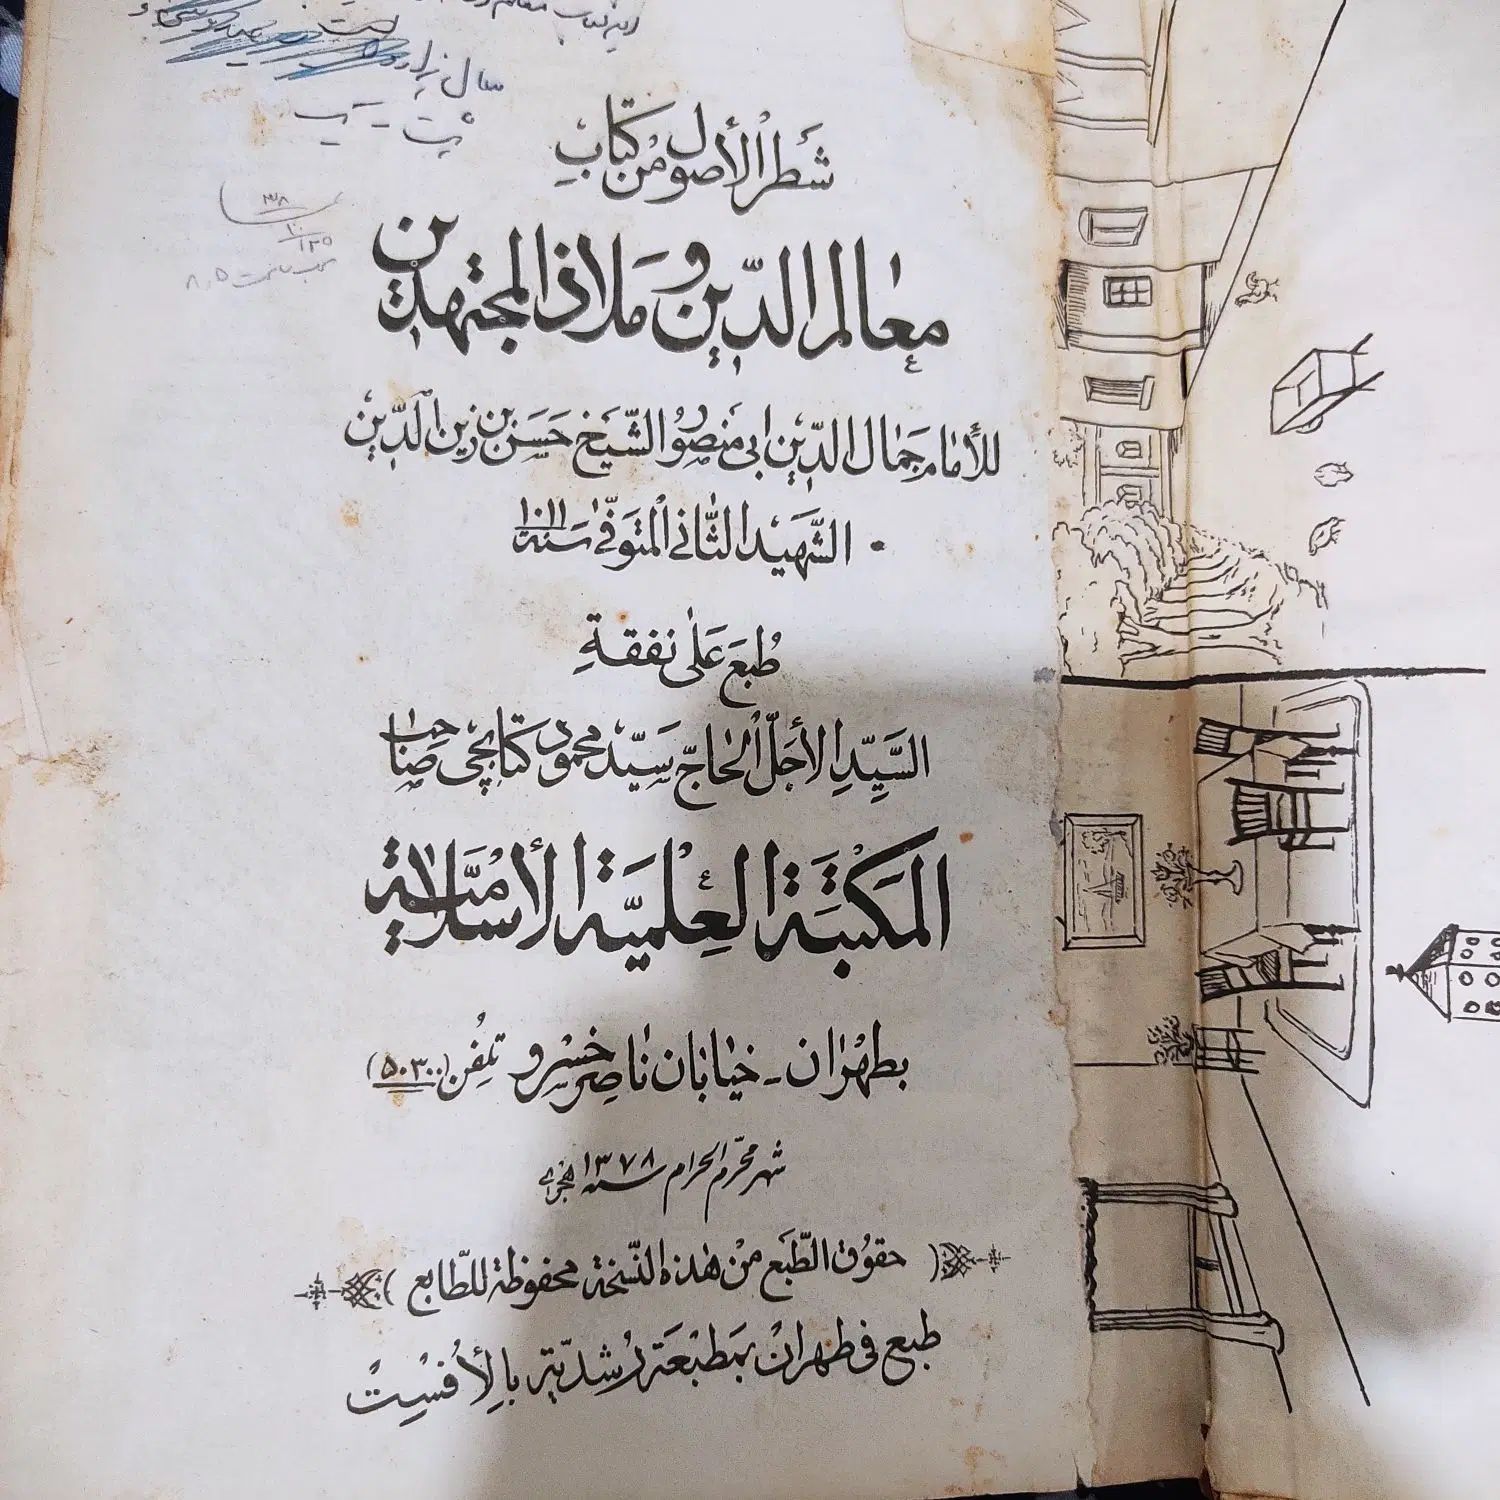 این کتاب
سال
شَطرُ الأصول مِن كِتابِ
معالم الدّين و ملاذ المجتهدين
للأمام جَمال الدّين ابى مَنصور الشّيخ حَسَن بن زين الدّين
الشّهيد الثّانى المتوفّى سَنة ١٠١١
طُبعَ عَلى نفقةِ
السَّيّدِ الأجَلّ الحاجّ سَيّد محمود كتابچى صاحب
المَكتبَة العِلميّة الأسلاميّة
بطهران - خيابان ناصر خسرو تلفن (۵۰۳۰۰)
شهر محرّم الحرام سنة ١٣٧٨ هجرى
(حقوق الطّبَع مِنْ هٰذه النّسخة محفوظة للطّابع)
طبع فى طهران بمَطبَعَة رُشديّة بالأُفسِت